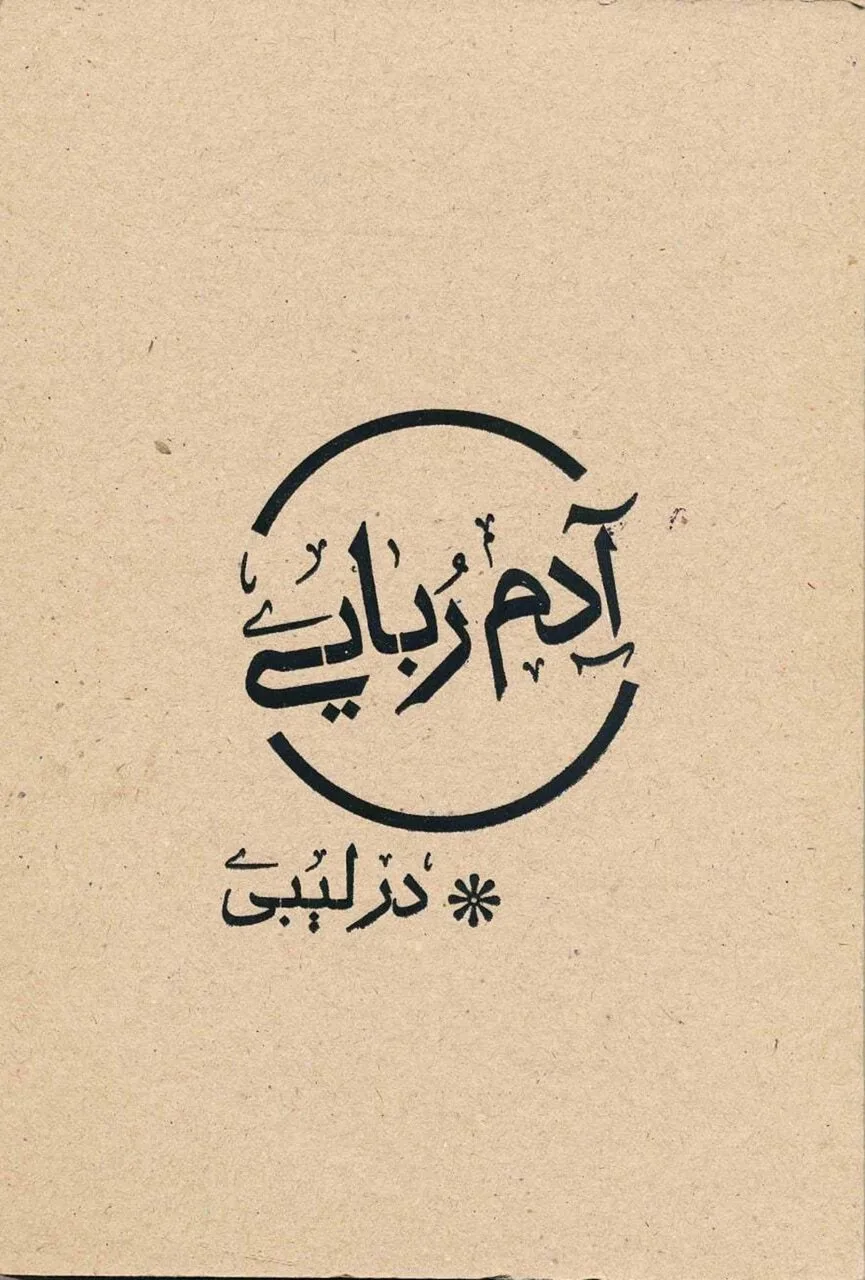 آدم رُبایی
در لیبی